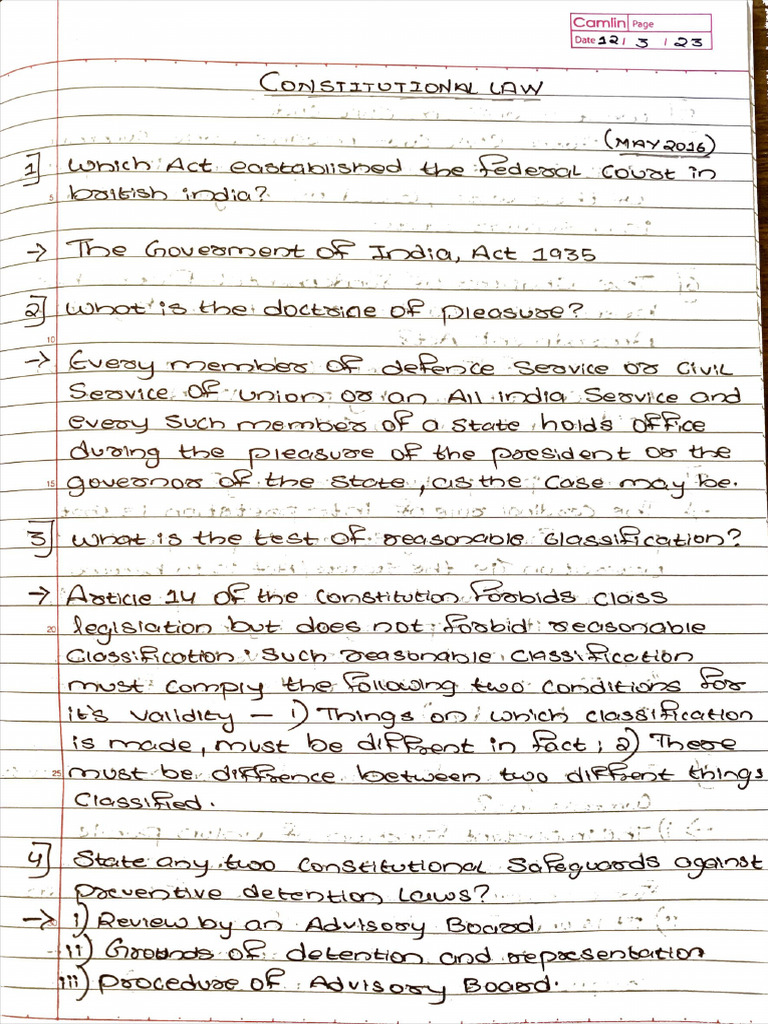 Camlin Page
Date 12 / 3 / 23
CONSTITUTIONAL LAW
(MAY 2016)
1] Which Act eastablished the federal court in
british india?
→ The Goverment of India, Act 1935
2] What is the doctrine of pleasure?
→ Every member of defence service or civil
Service of union or an All india Service and
every such member of a state holds office
during the pleasure of the president or the
governor of the state, as the case may be.
3] What is the test of reasonable classification?
→ Article 14 of the constitution forbids class
legislation but does not forbid reasonable
classification. Such reasonable classification
must comply the following two conditions for
it's validity – i) Things on which classification
is made, must be diffrent in fact; 2) There
must be diffrence between two diffrent things
classified.
4] State any two constitutional safeguards against
preventive detention laws?
→ i) Review by an Advisory Board.
ii) Grounds of detention and representation
iii) procedure of Advisory Board.